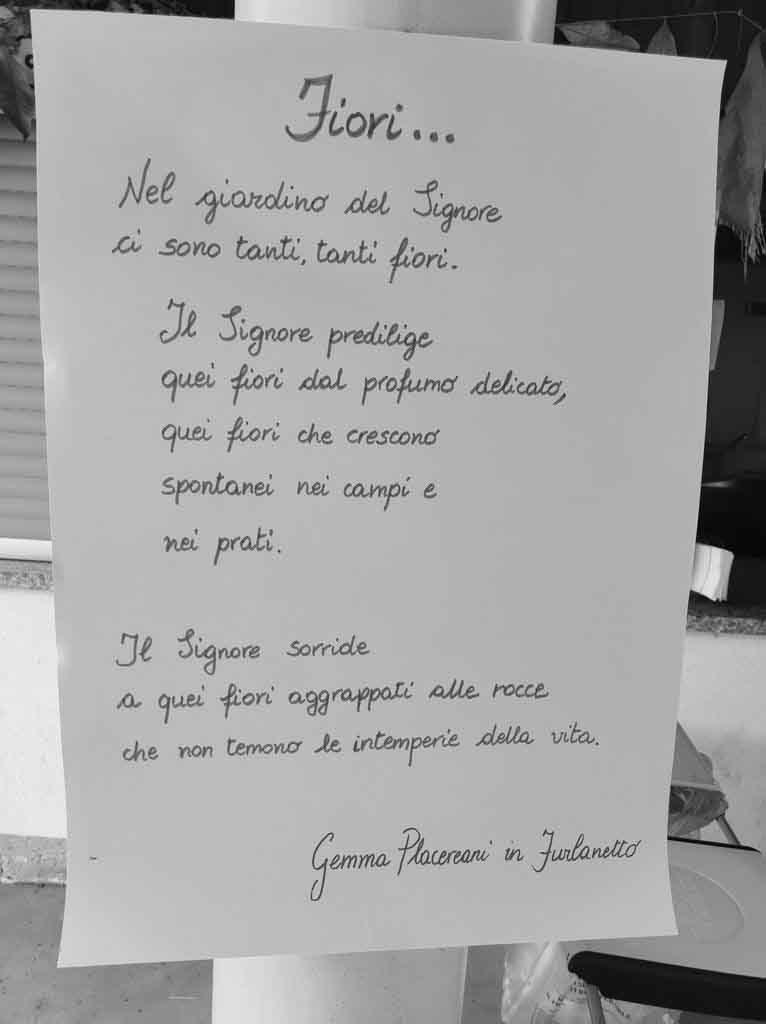 Fiori...
Nel giardino del Signore
ci sono tanti, tanti fiori.
Il Signore predilige
quei fiori dal profumo delicato,
quei fiori che crescono
spontanei nei campi e
nei prati.
Il Signore sorride
a quei fiori aggrappati alle rocce
che non temono le intemperie della vita.
Gemma Placereani in Furlanetto